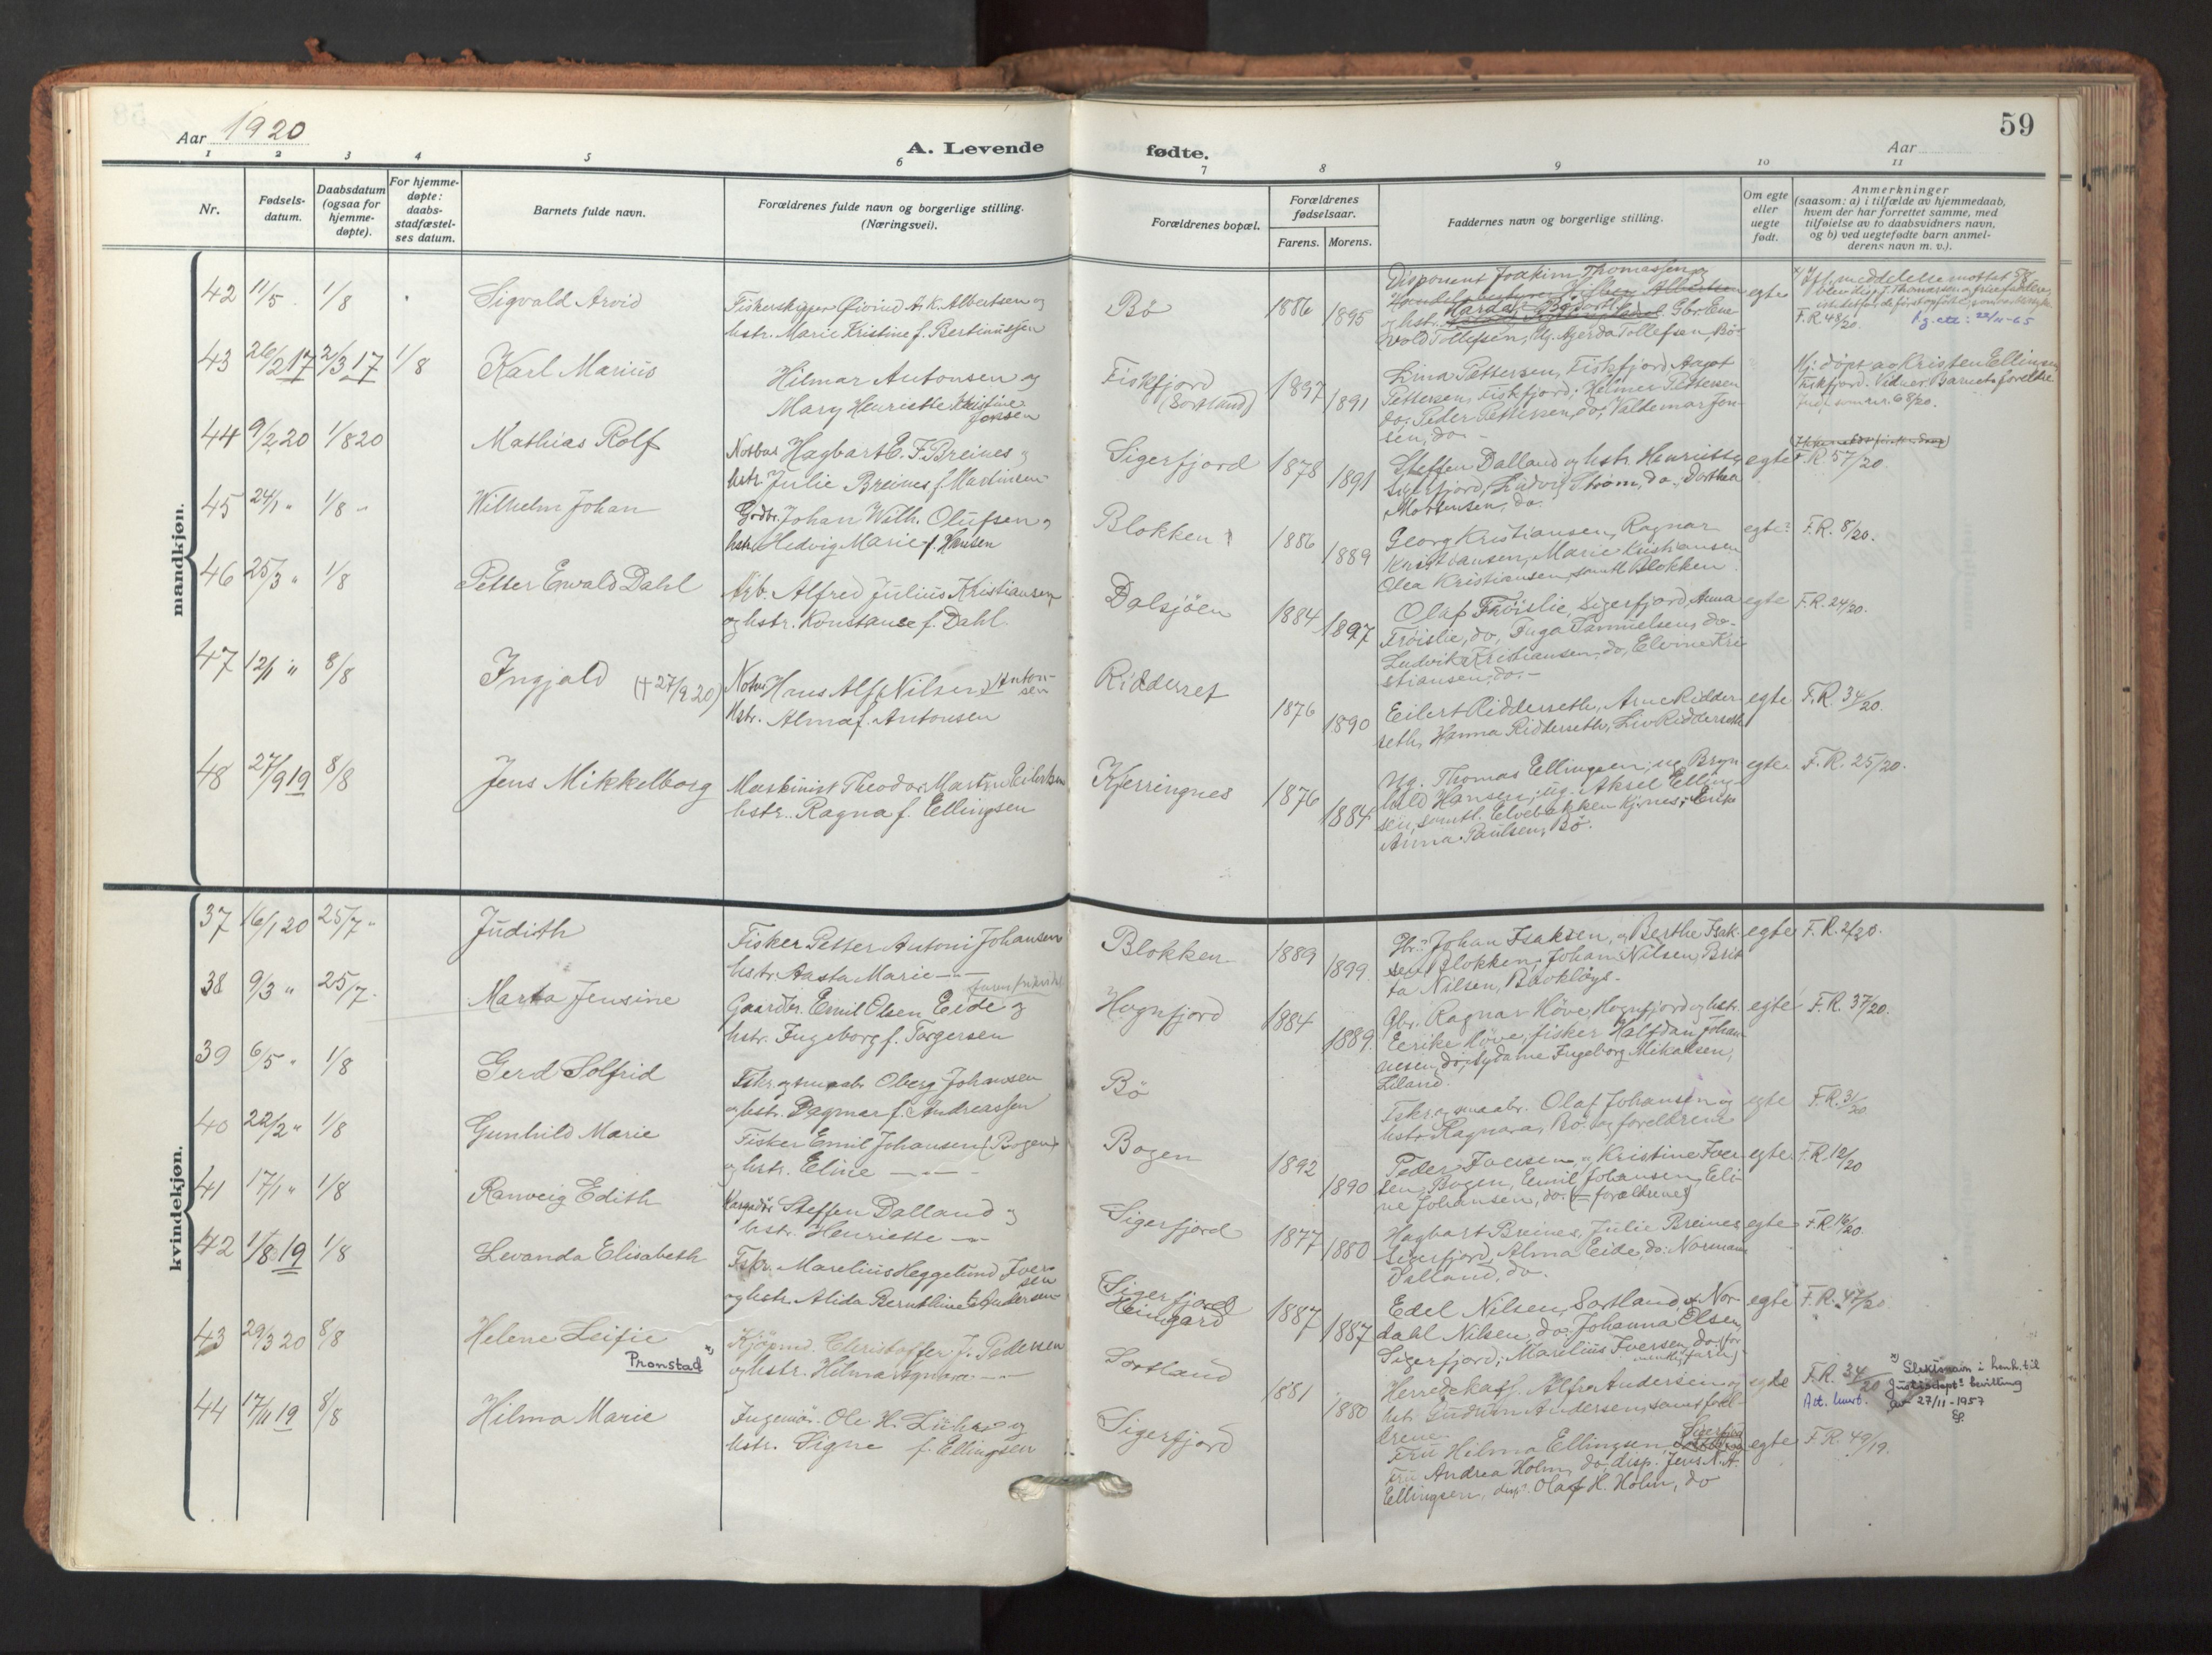 Aar 1920
A. Levende
fødte.
59
Aar
1 2 3 4 5 6 7 8 9 10 11
Nr.
Fødsels-
datum.
Daabsdatum
(ogsaa for
hjemme-
døpte).
For hjemme-
døpte:
daabs-
stadfæstel-
ses datum.
Barnets fulde navn.
Forældrenes fulde navn og borgerlige stilling.
(Næringsvei).
Forældrenes bopæl.
Forældrenes
fødselsaar.
Farens. Morens.
Faddernes navn og borgerlige stilling.
Om egte
eller
uegte
født.
Anmerkninger
(saasom: a) i tilfælde av hjemmedaab,
hvem der har forrettet samme, med
tilføielse av to daabsvidners navn,
og b) ved uegtefødte barn anmel-
derens navn m. v.).
mandkjøn.
42 11/5 1/8 Sigvald Arvid
Fiskerskipper Øivind A. K. Albertsen og
hstr. Marie Kristine f. Bertinussen
Bø 1886 1895
Disponent Joakim Thomassen og
wold Tollefsen, Ug. Agerda Tollefsen, Bö
egte
F.R. 48/20.
43 26/2 17 2/3 17 1/8 Karl Marius
Hilmar Antonsen og
Mary Henriette Kristine
Jensen
Fiskfjord
(Sortland)
1897 1891
Lina Pettersen, Fiskfjord, Aagot
Pettersen, Fiskfjord; Helmer Pettersen
do; Peder Pettersen, do; Valdemar Jen-
sen, do -
Hj: döpt av Kristen Ellingsen
Fiskfjord. Vidner Barnets foreldre
Indf. som nr. 68/20.
44 9/2 20 1/8 20 Mathias Rolf
Notbas Hagbart E. F. Breines og
hstr. Julie Breines f. Martinsen
Sigerfjord 1878 1891
Steffen Dalland og hstr. Henriette
Sigerfjord, Ludvig Strøm, do, Dorthea
Mortensen, do.
egte
F.R. 57/20.
45 24/1 " 1/8 " Wilhelm Johan
Grdbr. Johan Wilh. Olufsen og
hstr. Hedvig Marie f. Hansen
Blokken 1886 1889
Georg Kristiansen, Ragnar
Kristiansen, Marie Kristiansen
Olea Kristiansen, samtl Blokken
egte
F.R. 8/20.
46 25/3 " 1/8 Petter Ewald Dahl
Arb. Alfred Julius Kristiansen
og hstr. Konstanse f. Dahl.
Dalsjöen 1884 1897
Olaf Fröislie, Sigerfjord, Anna
Fröislie, do, Inga Danielsen, do-
Ludvik Kristiansen, do, Elvine Kri-
stiansen, do. -
egte
F.R. 24/20.
47 12/1 " 8/8 Ingjald (+ 27/9 20)
Hans Alf Nilsen Anton-
sen
Hstr. Alma f. Antonsen
Ridderset 1876 1890
Eilert Ridderseth, Arne Ridder-
seth, Hanna Ridderseth, Liv Ridderseth
egte
F.R. 34/20.
48 27/9 19 8/8 Jens Mikkelborg
Maskinist Theodor Martin Eilertsen
hstr. Ragna f. Ellingsen
Kjerringnes 1876 1884
Ug. Thomas Ellingsen; ug. Bryn
hild Hansen; ug. Aksel Elling-
sen, samtl. Elvebakken Kj.nes;
Anna Paulsen, Bö.
egte.
F.R. 25/20.
kvindekjøn.
37 16/1 20 25/7 " Judith
Fisker Petter Antoni Johansen
hstr. Aasta Marie -"-
Blokken 1889 1899
Gbr. Johan Isaksen, og Berthe Isak-
sen, Blokken, Johan Nilsen, Brit
ta Nilsen,
egte
F.R. 2/20.
38 9/3 " 25/7 Marta Jensine
Gaardbr. Emil Olsen Eide og
hstr. Ingeborg f. Torgersen
Hognfjord 1884 1889
Gbr. Ragnar Höve, Hognfjord og hstr.
Eerike Höve, fisker Halfdan Johan-
nesen, do, sydame Ingeborg Mikalsen,
Liland.
egte
F.R. 37/20.
39 6/5 " 1/8 Gerd Solfrid
Fskr. og smaabr. Oberg Johansen
og hstr. Dagmar f. Andreassen
Bö
Fskr. og smaabr. Olaf Johansen og
hstr. Ragnara, Bö. og foreldrene
egte
F.R. 31/20
40 22/2 " 1/8 Gunhild Marie
Fisker Emil Johansen (Bogen)
og hstr. Eline -"-
Bogen 1892 1890
Peder Iversen, Kristine Iver
sen, Bogen, Emil Johansen, Eli-
ne Johansen, do. (= forældrene)
egte
F.R. 12/20
41 17/1 " 1/8 Ranveig Edith
Steffen Dalland og
hstr. Henriette -"-
Sigerfjord 1877 1880
Hagbart Breines, Julie Breines
Sigerfjord, Alma Eide, do. Normann
Dalland, do.
egte
F.R. 16/20.
42 1/8 19 1/8 Levanda Elisabeth
Fskr. Marelius Heggelund Iver
sen
og hstr. Alida Berntline f. Andersen
Sigerfjord
Heimgard
1887 1887
Edel Nilsen, Sortland, Nor-
dahl Nilsen, do. Johanna Olsen,
Sigerfjord; Marelius Iversen, do.
egte
F.R. 47/20.
43 29/3 20 8/8 Helene Leifie
Pronstad x)
Kjöpmd. Christoffer J. Pedersen
og hstr. Hilma Agnara -"-
Sortland 1881 1880
Herredskass. Alfr. Andersen og
hstr. Gudrun Andersen, samt forel-
drene
egte
F.R. 34/20
x) Slektsnavn i henh. til
Justisdept.s bevilling
av 27/11-1957
44 17/11 19 8/8 Hilma Marie
Ingeniör. Ole H. Lühr og
hstr. Signe f. Ellingsen
Sigerfjord
Fru Hilma Ellingsen Sigerfjord
Fru Andrea Holm, do, disp. Jens N. A.
Ellingsen, disp. Olaf H. Holm, do
egte
F.R. 49/19.